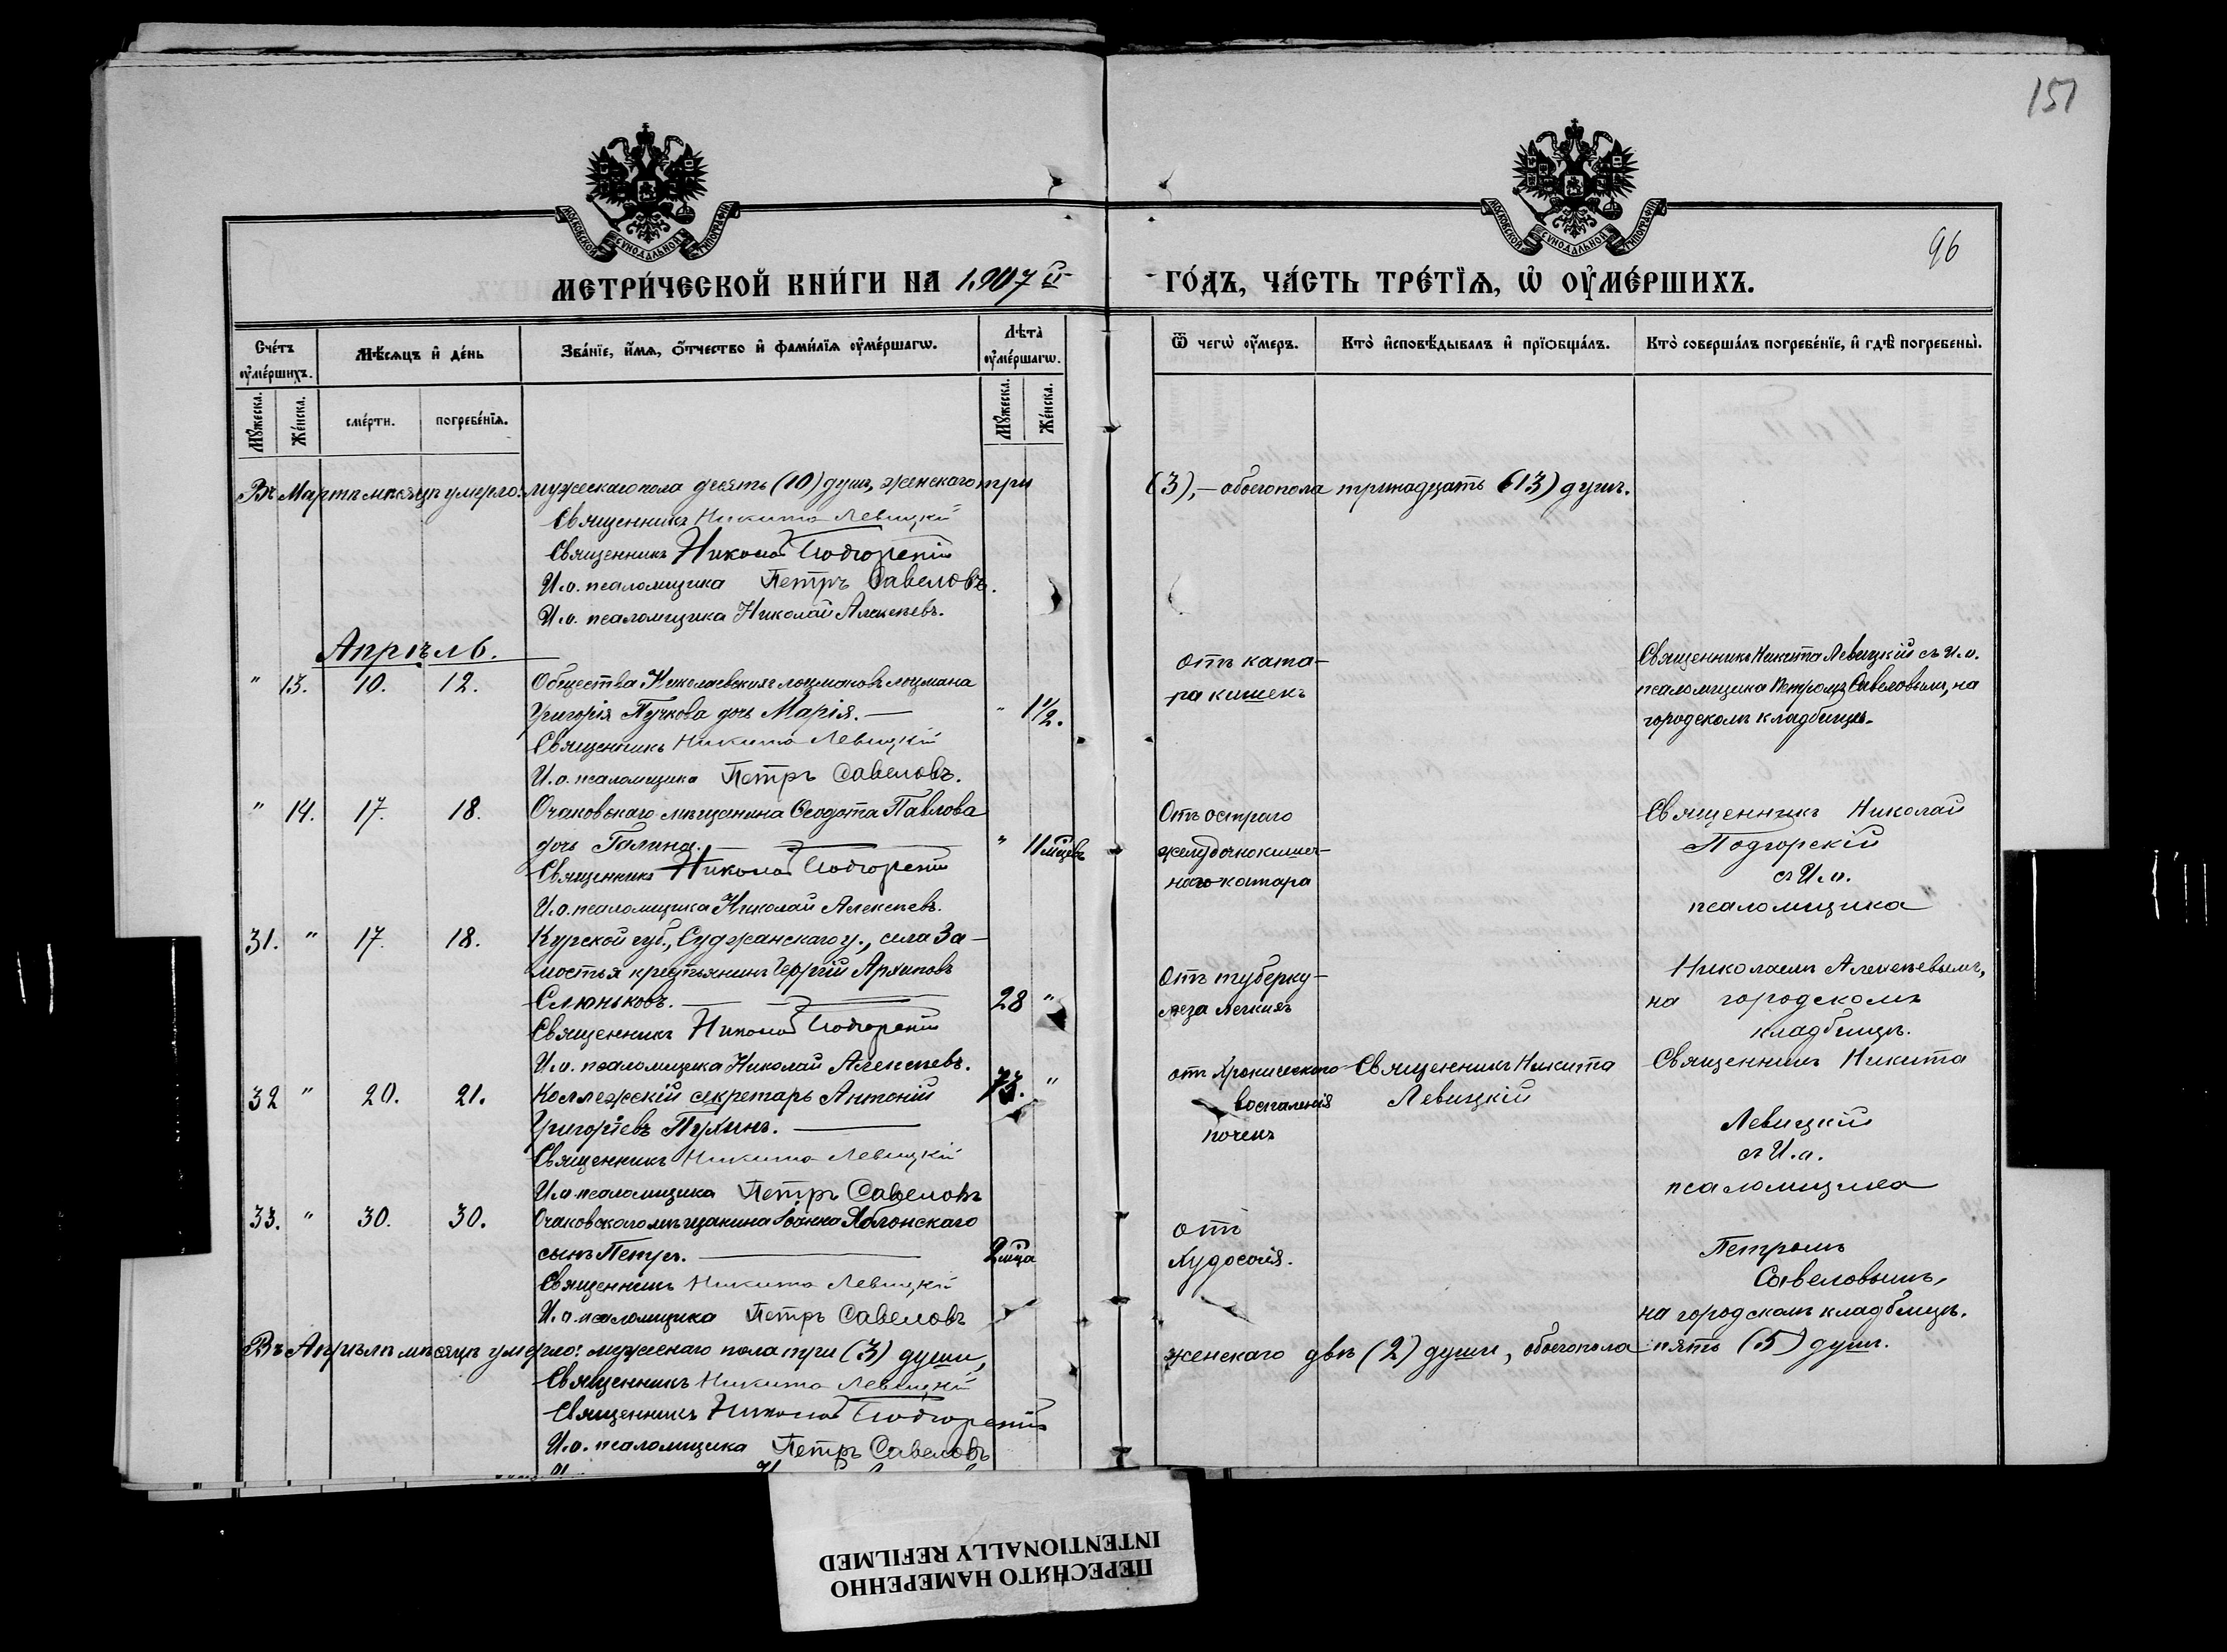 151
96
МОСКОВСКОЙ СѴНОДАЛЬНОЙ ТИПОГРАФІИ
МОСКОВСКОЙ СѴНОДАЛЬНОЙ ТИПОГРАФІИ
МЕТРИ́ЧЕСКОЙ КНИ́ГИ НА 1907 й
ГО́ДЪ, ЧА́СТЬ ТРЕ́ТЇѦ, Ѡ҆ ОУ҆МЕ́РШИХЪ.
Сче́тъ оу҆ме́ршихъ.
Мѣ́сѧцъ и҆ де́нь
Зва́нїе, и҆́мѧ, ѻ҆́тчество и҆ фами́лїѧ оу҆ме́ршагѡ.
Лѣ́та оу҆ме́ршагѡ.
Ѿ чегѡ̀ оу҆́меръ.
Кто̀ и҆сповѣ́дывалъ и҆ прїѻбща́лъ.
Кто̀ соверша́лъ погребе́нїе, и҆ гдѣ̀ погребены̀.
Мꙋ́жеска.
Же́нска.
сме́рти.
погребе́нїѧ.
Мꙋ́жеска.
Же́нска.
Въ Мартѣ мѣсяцѣ умерло: мужескаго пола десять (10) душъ, женскаго три (3), – обоего пола тринадцать (13) душъ.
Священникъ Никита Левицкій
Священникъ Николай Подгорскій
И. о. псаломщика Петръ Савеловъ.
И. о. псаломщика Николай Алексѣевъ.
Апрѣль.
" 13. 10. 12. Общества Николаевскихъ лоцмановъ лоцмана
Григорія Пучкова дочь Марія. — " 1½.
Священникъ Никита Левицкій
И. о. псаломщика Петръ Савеловъ.
отъ ката-
ра кишекъ
Священникъ Никита Левицкій съ И. о.
псаломщика Петромъ Савеловымъ, на
городскомъ кладбищѣ.
" 14. 17. 18. Очаковскаго мѣщанина Ѳеодота Павлова
дочь Галина. — " 11 мцевъ
Священникъ Николай Подгорскій
И. о. псаломщика Николай Алексѣевъ.
Отъ остраго
желудочнокишеч-
наго катара
Священникъ Николай
Подгорскій
съ И. о.
псаломщика
31. " 17. 18. Курской губ., Суджанскаго у., села За-
мостья крестьянинъ Георгій Архиповъ
Слюньковъ. — 28 "
Священникъ Николай Подгорскій
И. о. псаломщика Николай Алексѣевъ.
Отъ туберку-
леза легкихъ
Николаемъ Алексѣевымъ,
на городскомъ
кладбищѣ.
32 " 20. 21. Коллежскій секретарь Антоній 73. "
Григоріевъ Пухинъ. —
Священникъ Никита Левицкій
И. о. псаломщика Петръ Савеловъ
отъ Хроническаго
воспаленія
почекъ
Священникъ Никита
Левицкій
Священникъ Никита
Левицкій
съ И. о.
псаломщика
33. " 30. 30. Очаковскаго мѣщанина Іоанна Яблонскаго
сынъ Петръ. — 2 мца
Священникъ Никита Левицкій
И. о. псаломщика Петръ Савеловъ
отъ
худосочія.
Петромъ
Савеловымъ,
на городскомъ кладбищѣ.
Въ Апрѣлѣ мѣсяцѣ умерло: мужескаго пола три (3) души, женскаго двѣ (2) души, обоего пола пять (5) душъ.
Священникъ Никита Левицкій
Священникъ Николай Подгорскій
И. о. псаломщика Петръ Савеловъ
ПЕРЕСНЯТО НАМЕРЕННО
INTENTIONALLY REFILMED